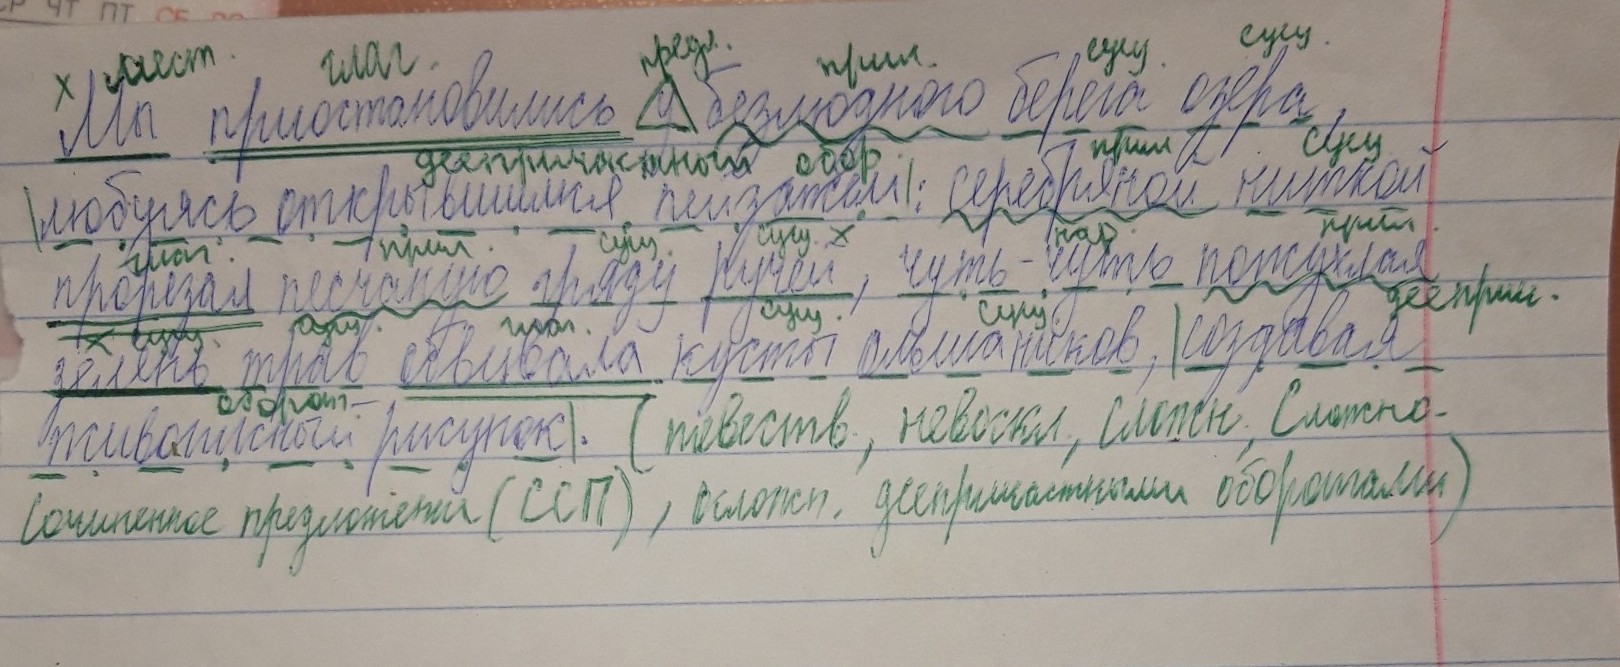 СР ЧТ ПТ СБ
х мест. глаг. предл. прил. сущ. сущ.
Мы приостановились у безлюдного берега озера,
деепричастный обор. прил сущ
|любуясь открывшимся пейзажем|: серебряной ниткой
глаг. прил. сущ. сущ. х нар. прил.
прорезал песчаную гряду ручей, чуть-чуть пожухлая
х сущ. сущ. глаг. сущ. сущ. дееприч.
зелень трав обвивала кусты ольшаников, |создавая
оборот
живописный рисунок|. (повеств., невоскл., сложн., Сложно-
сочиненное предложение (ССП), осложн. деепричастными оборотами)